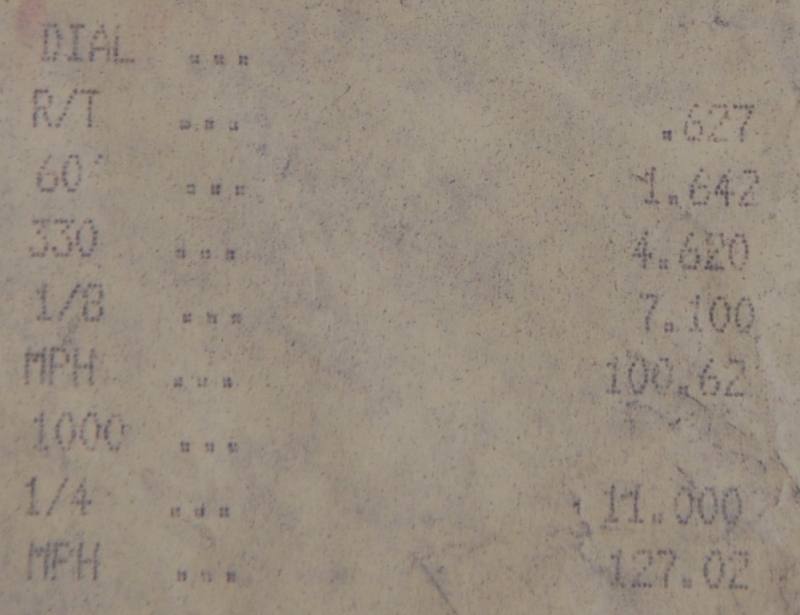 DIAL ...
R/T ... .627
60' ... 1.642
330 ... 4.620
1/8 ... 7.100
MPH ... 100.62
1000 ...
1/4 ... 11.000
MPH ... 127.02